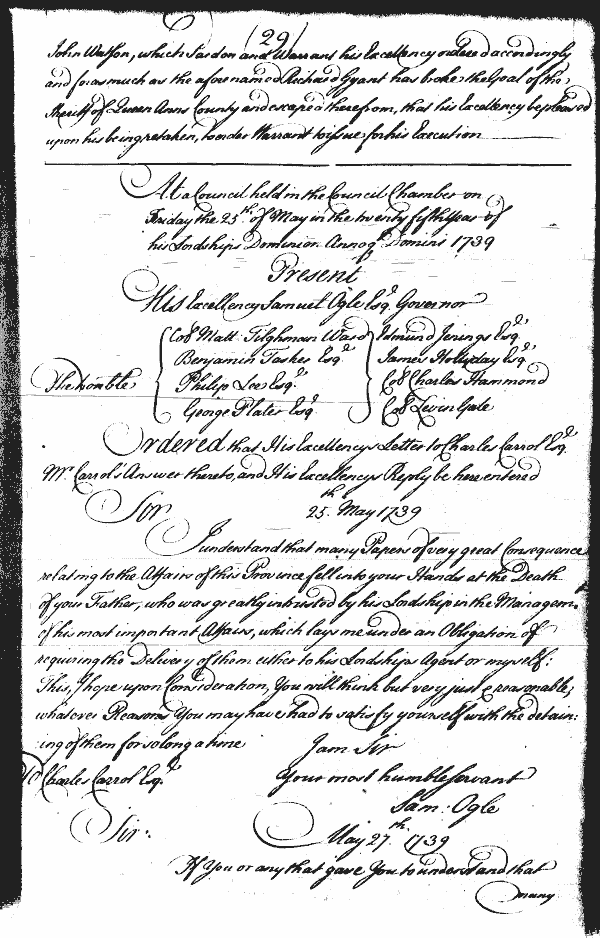 (29)
John Watson, which Pardon and Warrant his Excellency ordered accordingly
and forasmuch as the aforenamed Richard Gyant has broke the Goal of the
Sheriff of Queen Anns County and escaped therefrom, that his Excellency be pleased
upon his being retaken, to order Warrant to issue for his Execution
At a Council held in the Council Chamber on
Friday the 25th of May in the twenty fifth Year of
his Lordships Dominion Annoq Domini 1739
Present
His Excellency Samuel Ogle Esqr. Governor
The honble
Col Matt: Tilghman Ward
Benjamin Tasker Esqr.
Philip Lee Esqr.
George Plater Esqr.
Edmund Jenings Esqr.
James Hollyday Esqr.
Col Charles Hammond
Col Levin Gale
Ordered that His Excellencys Letter to Charles Carrol Esqr.
Mr. Carrol's Answer thereto, and His Excellencys Reply be here entered
Sir
25.th May 1739
I understand that many Papers of very great Consequence
relating to the Affairs of this Province fell into your Hands at the Death
of your Father, who was greatly intrusted by his Lordship in the Managem.
of his most important Affairs, which lays me under an Obligation of
requiring the Delivery of them either to his Lordships Agent or myself:
This, I hope upon Consideration, You will think but very just & reasonable;
whatever Reasons You may have had to satisfy yourself with the detain:
:ing of them for so long a time
I am Sir
To Charles Carrol Esqr.
Your most humble Servant
Sam: Ogle
Sir.
May 27.th 1739
If You or any that gave You to understand that
many